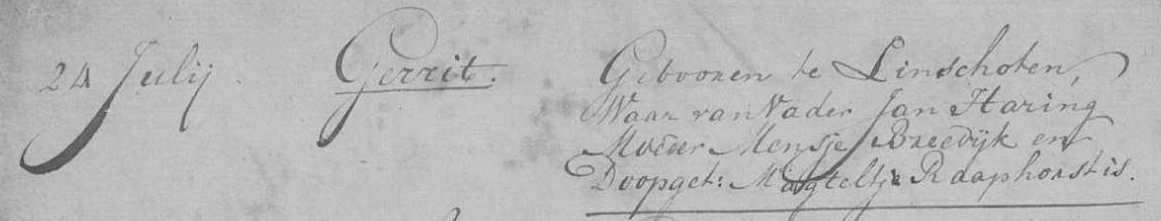 24 Julij. Gerrit. Gebooren te Linschoten,
Waar van Vader Jan Haring
Moeder Mensje Breedijk en
Doopget: Magteltje Raaphorst is.